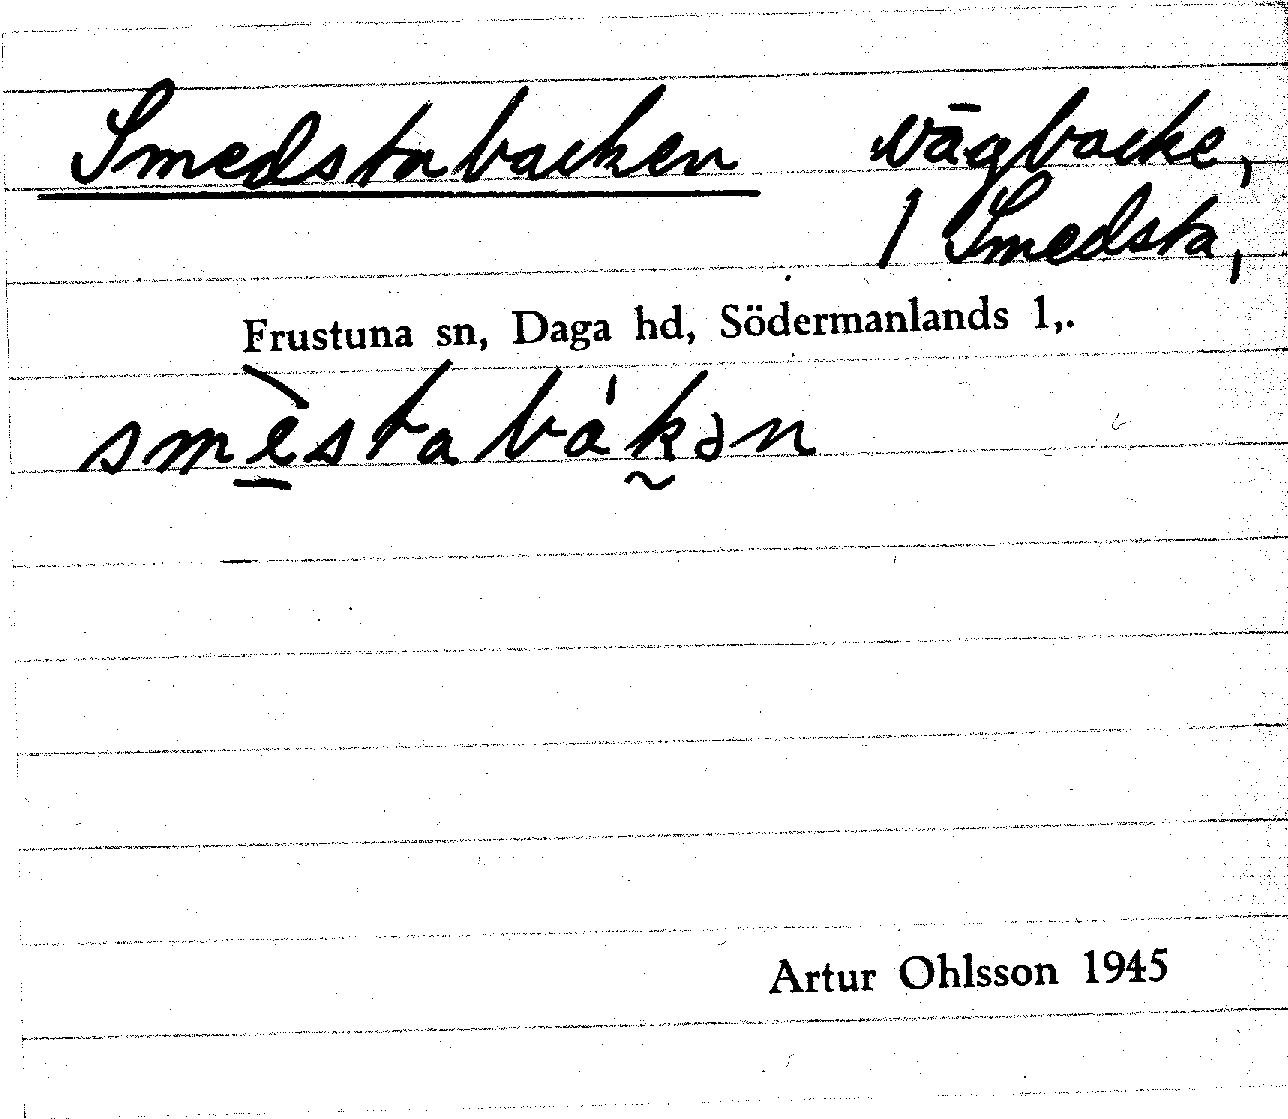 Smedstabacken vägbacke,
/ Smedsta,
Frustuna sn, Daga hd, Södermanlands l,.
smès̀tabákən
Artur Ohlsson 1945